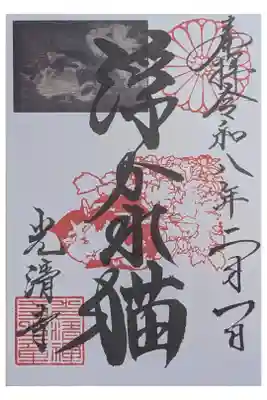 奉拝令和八年二月一日
浮かれ猫
光清寺